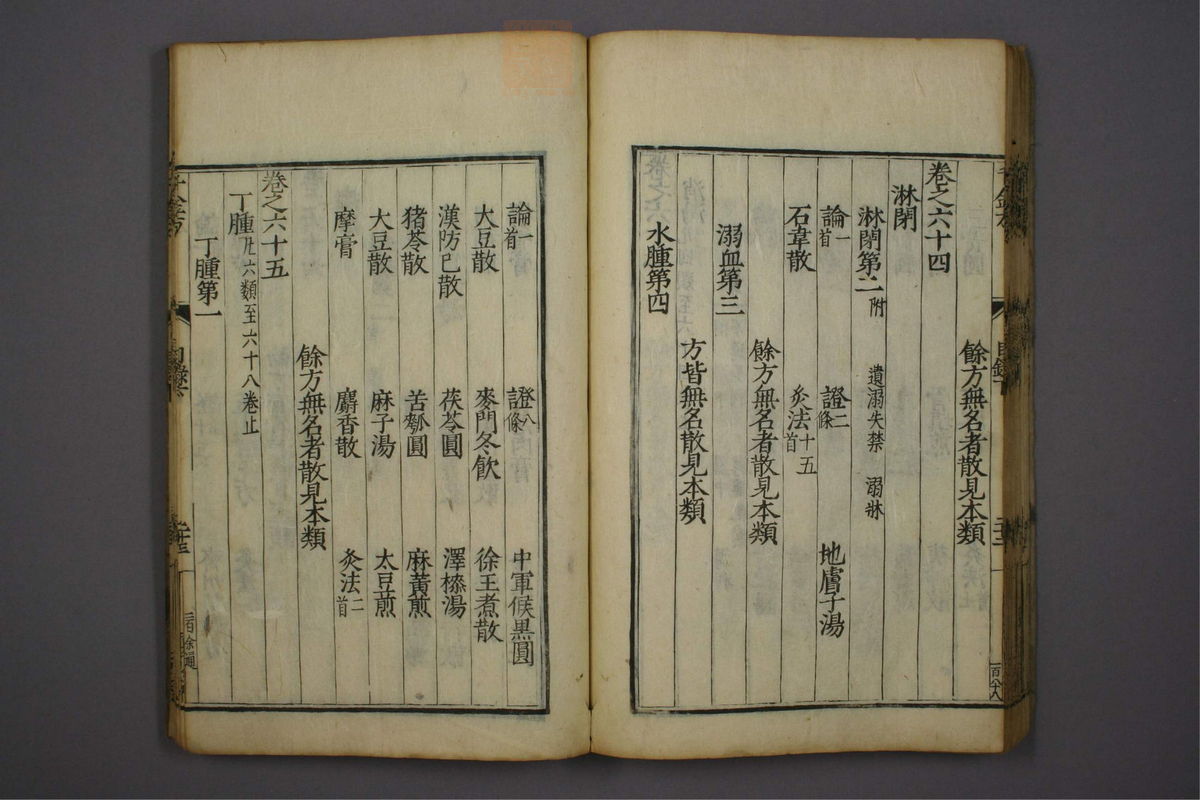 餘方無名者散見本類
卷之六十四
淋閉
淋閉第二附 遺溺失禁 溺牀
論一首 證二條 地膚子湯
石韋散 灸法十五首
餘方無名者散見本類
溺血第三
方皆無名散見本類
水腫第四
論一首 證八條 中軍候黑圓
大豆散 麥門冬飲 徐王煮散
漢防已散 茯苓圓 澤𣾰湯
猪苓散 苦瓠圓 麻黃煎
大豆散 麻子湯 太豆煎
摩膏 麝香散 灸法二首
餘方無名者散見本類
卷之六十五
丁腫凡六類至六十八卷止
丁腫第一